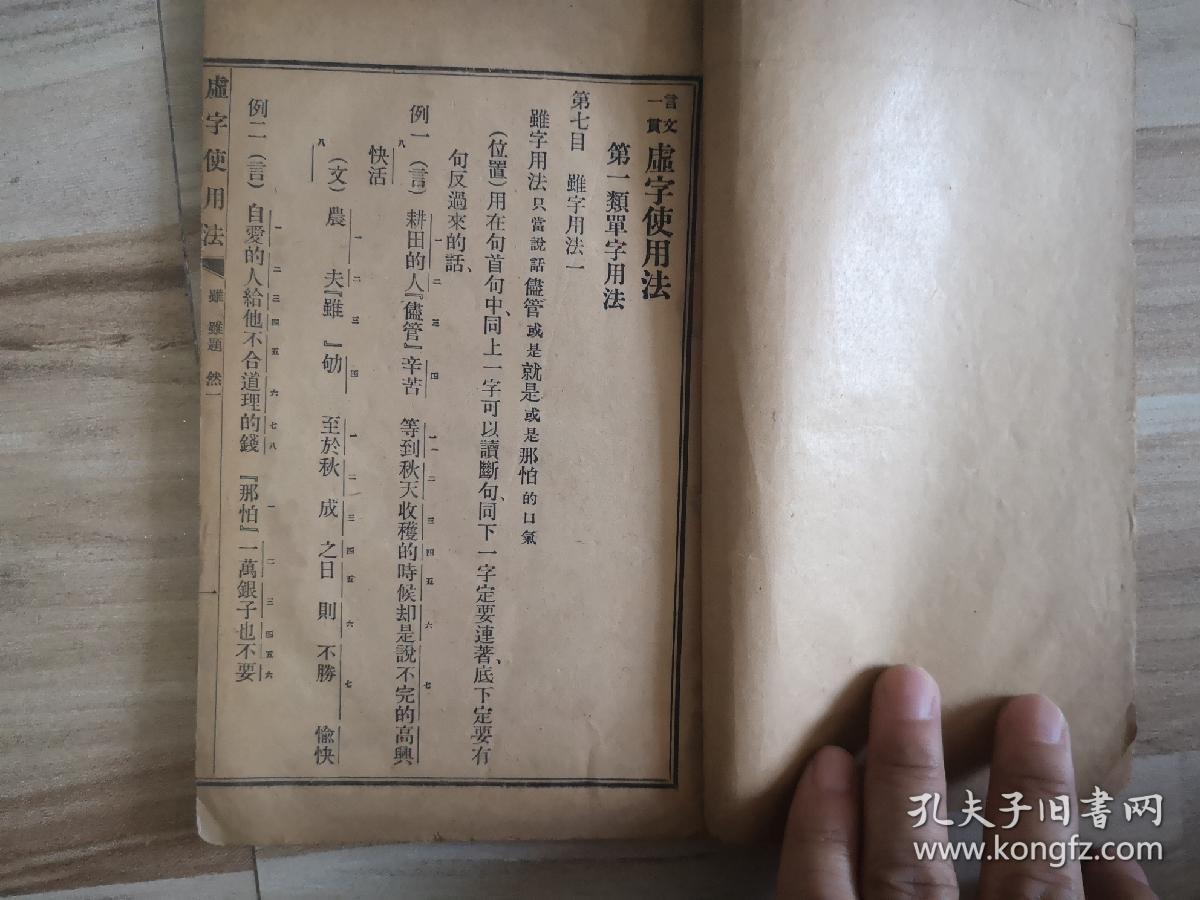 言文一貫 虛字使用法
第一類單字用法
第七目　雖字用法一
雖字用法只當說話儘管或是就是或是那怕的口氣
(位置)用在句首句中、同上一字可以讀斷句、同下一字定要連著、底下定要有
句反過來的話、
例一(言)耕田的人『儘管』辛苦　等到秋天收穫的時候却是說不完的高興
一二三四一一二三四五六七
快活
八
(文)農　夫『雖』劬　至於秋　成　之日　則　不勝　愉快
一二三四一二三四五六七
八
例二(言)自愛的人給他不合道理的錢『那怕』一萬銀子也不要
一二三四五六七八一二三四五六
虛字使用法　雖　雖題　然一　一
孔夫子旧書网
www.kongfz.com